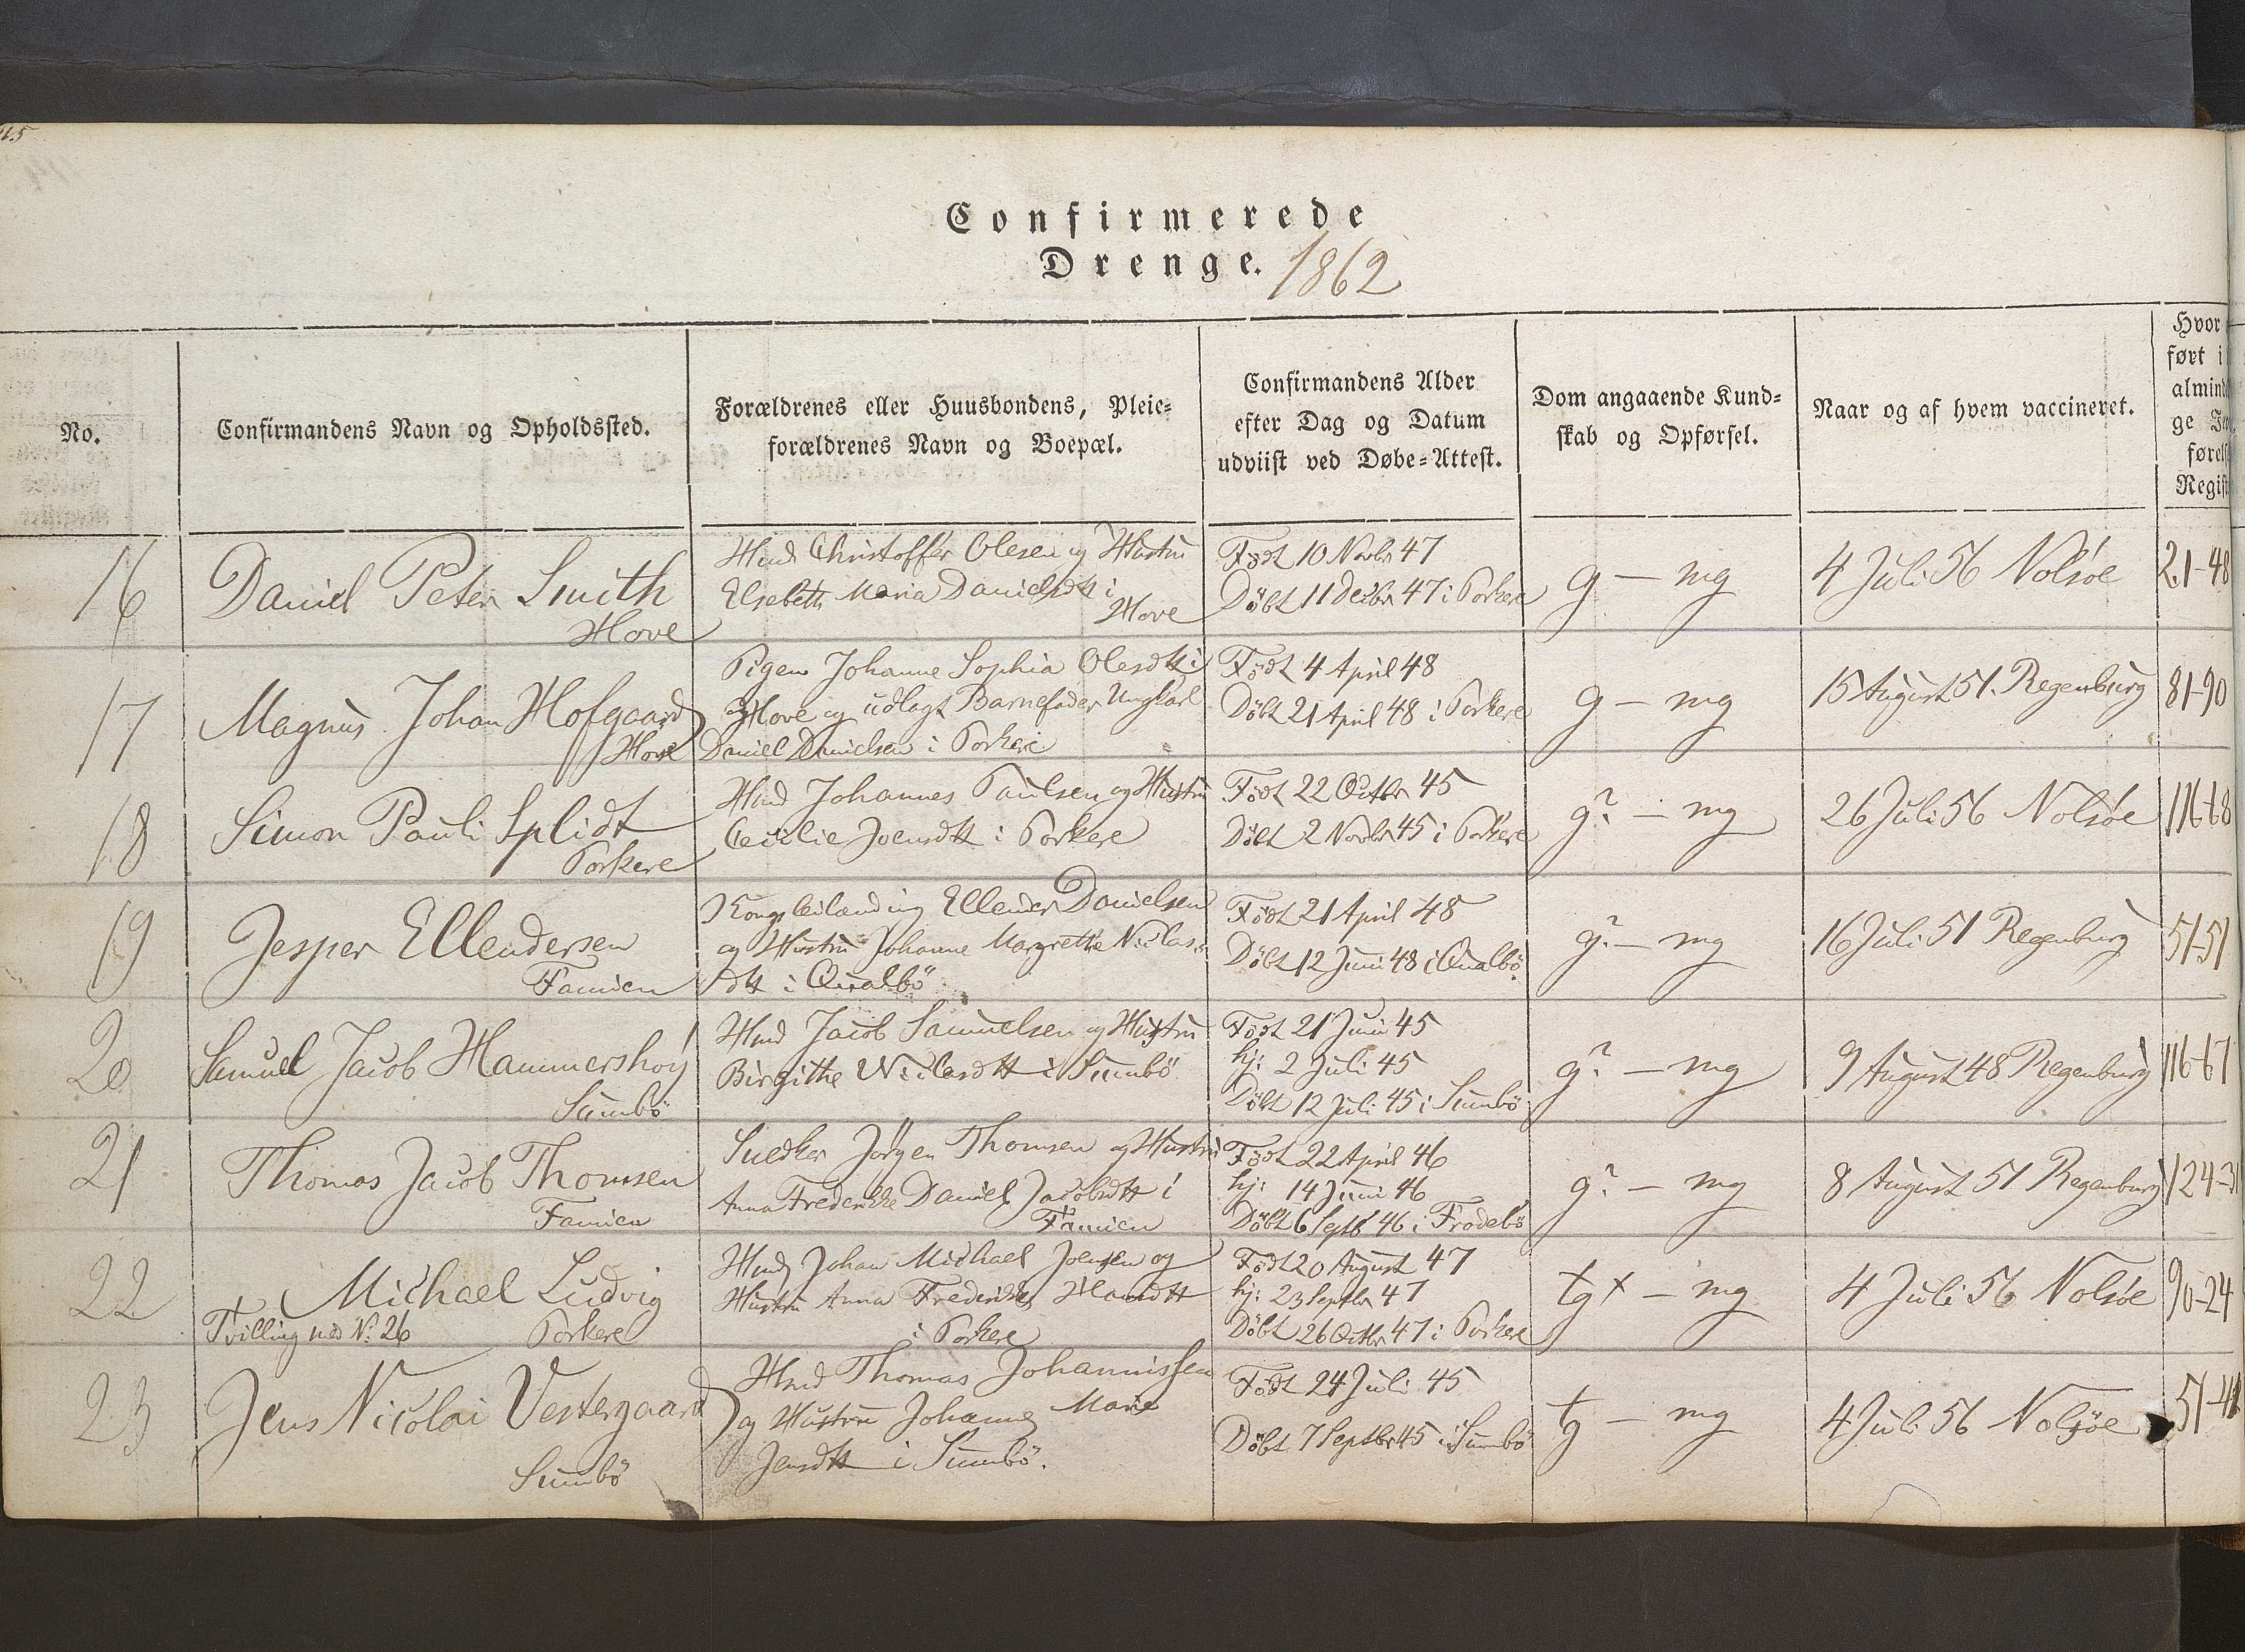 Confirmerede
Drenge. 1862
No.
Confirmandens Navn og Opholdssted.
Forældrenes eller Huusbondens, Pleie-
forældrenes Navn og Boepæl.
Confirmandens Alder
efter Dag og Datum
udviist ved Døbe-Attest.
Dom angaaende Kund-
skab og Opførsel.
Naar og af hvem vaccineret.
Hvor
ført i
almind
ge
førels
Regist
16
Daniel Peter Smith
Hove
Hmd Christoffer Olesen og Hustru
Elsebeth Maria Danielsdtt i
Hove
Født 10 Novbr 47
Döbt 11 Decbr 47 i Porkere
g — mg
4 Juli 56 Nolsöe
21-48
17
Magnus Johan Hofgaard
Hove
Pigen Johanne Sophia Olesdtt i
Hove og udlagt Barnefader Ungkarl
Daniel Danielsen i Porkere
Födt 4 April 48
Döbt 21 April 48 i Porkere
g — mg
15 August 51. Regenburg
81-90
18
Simon Pauli Splidt
Porkere
Hmd Johannes Paulsen og Hustru
Cecilie Joensdtt i Porkere
Födt 22 Octbr 45
Döbt 2 Novbr 45 i Porkere
g? — mg
26 Juli 56 Nolsöe
116-68
19
Jesper Ellendersen
Famien
Kongsleilænding Ellender Danielsen
og Hustru Johanne Margrethe Niclas-
dtt i Qvalbö
Födt 21 April 48
Döbt 12 Juni 48 i Qvalbö
g? — mg
16 Juli 51 Regenburg
51-51
20
Samuel Jacob Hammershöj
Sumbö
Hmd Jacob Samuelsen og Hustru
Birgithe Niclasdtt i Sumbö
Födt 21 Juni 45
hj: 2 Juli 45
Döbt 12 Juli 45 i Sumbö
g? — mg
9 August 48 Regenburg
116-67
21
Thomas Jacob Thomsen
Famien
Snedker Jörgen Thomsen og Hustru
Anna Fredericke Daniel Jacobsdtt i
Famien
Födt 22 April 46
hj: 14 Juni 46
Döbt 6 Septb 46 i Frodebö
g? — mg
8 August 51 Regenburg
124-3
22
Michael Ludvig
Tvilling med No. 26 Porkere
Hmd Johan Michael Joensen og
Hustru Anna Fredericke Hansdtt
i Porkere
Födt 20 August 47
hj: 23 Septbr 47
Döbt 26 Octbr 47 i Porkere
tg x — mg
4 Juli 56 Nolsöe
90-24
23
Jens Nicolai Vestergaard
Sumbö
Hmd Thomas Johannissen
og Hustru Johanne Marie
Jensdtt i Sumbö.
Födt 24 Juli 45
Döbt 7 Septbr 45 i Sumbö
tg — mg
4 Juli 56 Nolsöe
51-41